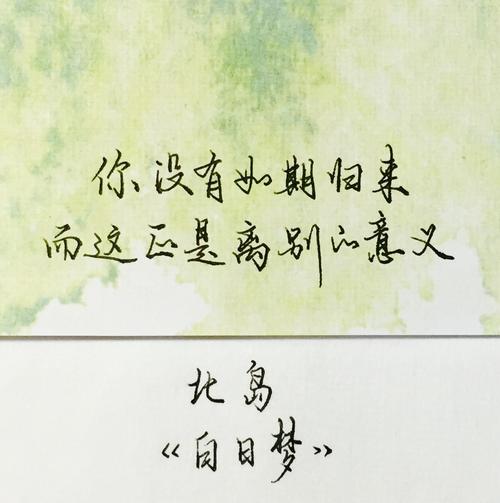 你没有如期归来
而这正是离别的意义
北岛
《白日梦》